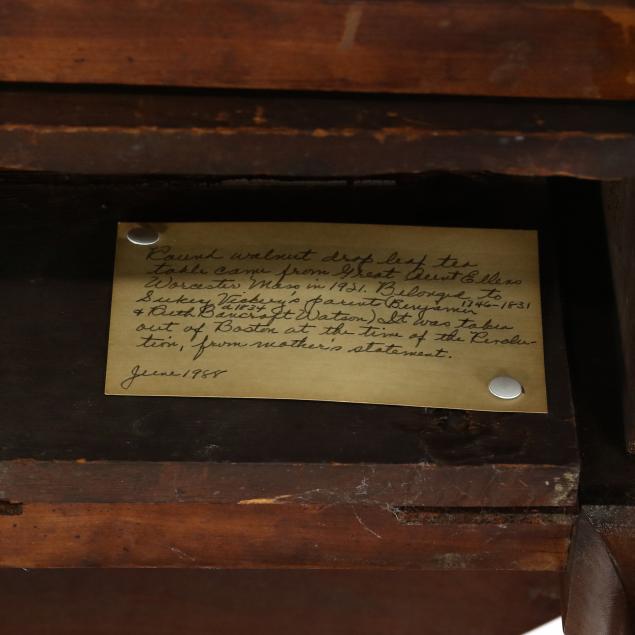 Round walnut drop leaf tea
table came from Great Aunt Ellens
Worcester Mass in 1921. Belonged to
Sukey Vickery's parent (Benjamin 1746-1831
& Ruth Bancroft Watson) It was taken
out of Boston at the time of the Revolu-
tion, from mother's statement.
June 1988